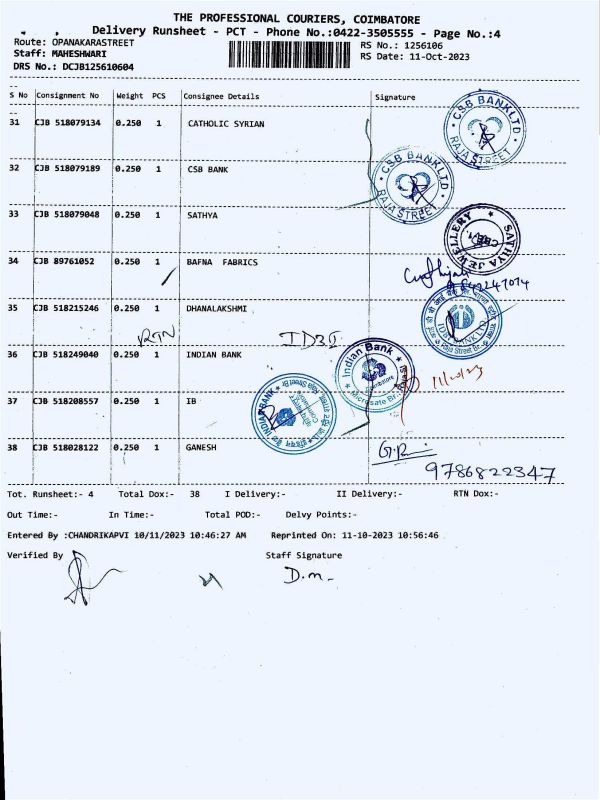 THE PROFESSIONAL COURIERS, COIMBATORE
Delivery Runsheet - PCT - Phone No.:0422-3505555 - Page No.:4
Route: OPANAKARASTREET RS No.: 1256106
Staff: MAHESHWARI RS Date: 11-Oct-2023
DRS No.: DCJB125610604
S No Consignment No Weight PCS Consignee Details Signature
31 CJB 518079134 0.250 1 CATHOLIC SYRIAN
CSB BANK LTD RAJA STREET
32 CJB 518079189 0.250 1 CSB BANK
CSB BANK LTD RAJA STREET
33 CJB 518079048 0.250 1 SATHYA
SATHYA JEWELLERY
34 CJB 89761052 0.250 1 BAFNA FABRICS
35 CJB 518215246 0.250 1 DHANALAKSHMI
RTN
IDBI BANK LTD
36 CJB 518249040 0.250 1 INDIAN BANK
Indian Bank
11/10/23
37 CJB 518208557 0.250 1 IB
INDIAN BANK
38 CJB 518028122 0.250 1 GANESH
9786822347
Tot. Runsheet:- 4 Total Dox:- 38 I Delivery:- II Delivery:- RTN Dox:-
Out Time:- In Time:- Total POD:- Delvy Points:-
Entered By :CHANDRIKAPVI 10/11/2023 10:46:27 AM Reprinted On: 11-10-2023 10:56:46
Verified By Staff Signature
D.m.